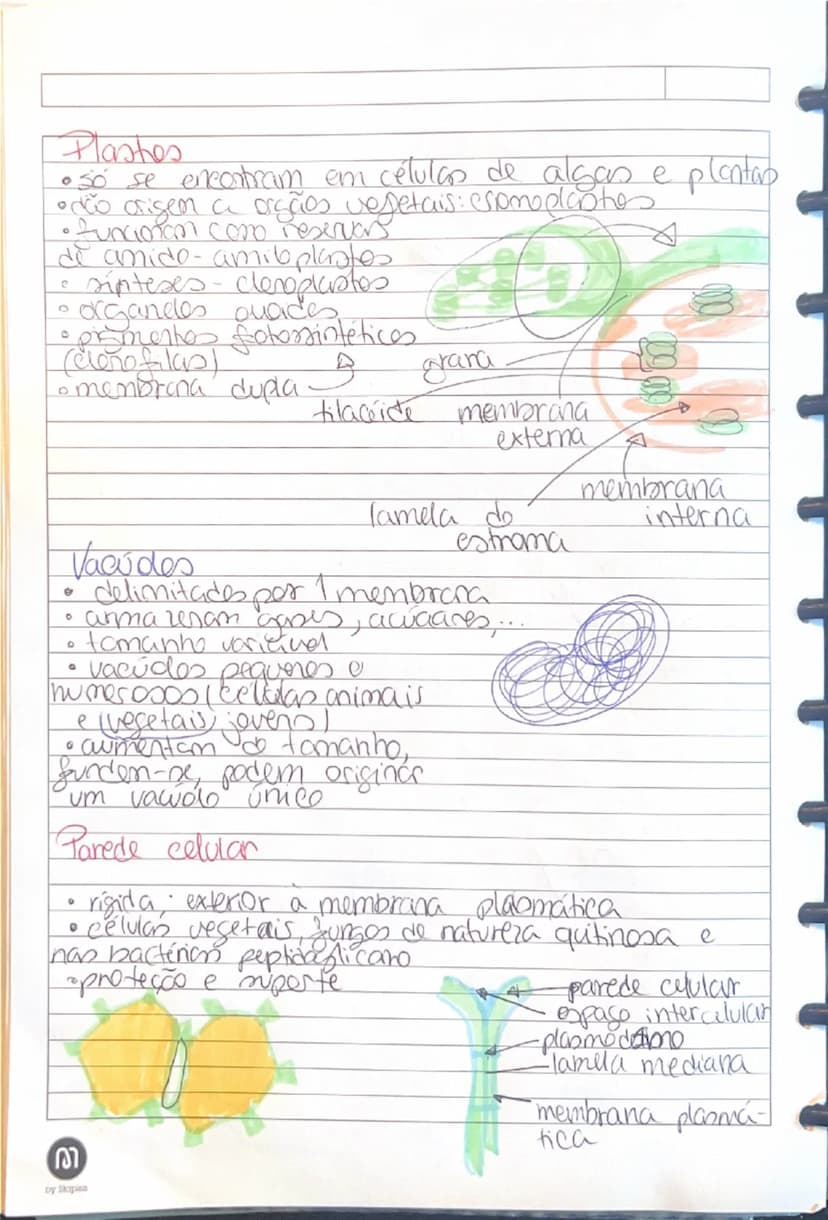 Plastos
• só se encontram em células de algas e plantas
• dão origem a orgãos vegetais: cromoplastos
• funcionam como reservas
de amido - amiloplastos
• sínteses - cloroplastos
• organelos ovoides
• pigmentos fotossintéticos
(clorofilas)
• membrana dupla
grana
tilacóide
membrana
externa
membrana
interna
lamela do
estroma
Vacúolos
• delimitados por 1 membrana
• armazenam gases, açúcares,...
• tamanho variável
• vacúolos pequenos e
numerosos (células animais
e vegetais jovens)
• aumentam do tamanho,
fundem-se, podem originar
um vacúolo único
Parede celular
• rígida; exterior à membrana plasmática
• células vegetais, fungos de natureza quitinosa e
nas bactérias peptidoglicano
• proteção e suporte
parede celular
espaço intercelular
lamela mediana
membrana plasmá-
tica
by Skiplan